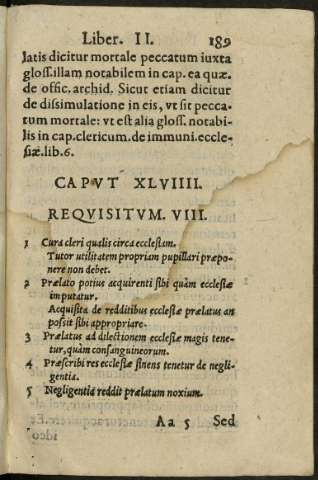 Liber. II. 189
latis dicitur mortale peccatum iuxta
gloss. illam notabilem in cap. ea quæ.
de offic. archid. Sicut etiam dicitur
de dissimulatione in eis, vt sit pecca-
tum mortale: vt est alia gloss. notabi-
lis in cap. clericum. de immuni. eccle-
siæ. lib. 6.
CAPVT XLVIIII.
REQVISITVM. VIII.
1 Cura cleri qualis circa ecclesiam.
Tutor utilitatem propriam pupillari præpo-
nere non debet.
2 Prælato potius acquirenti sibi quàm ecclesiæ
imputatur.
Acquisita de redditibus ecclesiæ prælatus an
possit sibi appropriare.
3 Prælatus ad dilectionem ecclesiæ magis tene-
tur, quàm consanguineorum.
4 Præscribi res ecclesiæ sinens tenetur de negli-
gentia.
5 Negligentia reddit prælatum noxium.
Aa 5 Sed